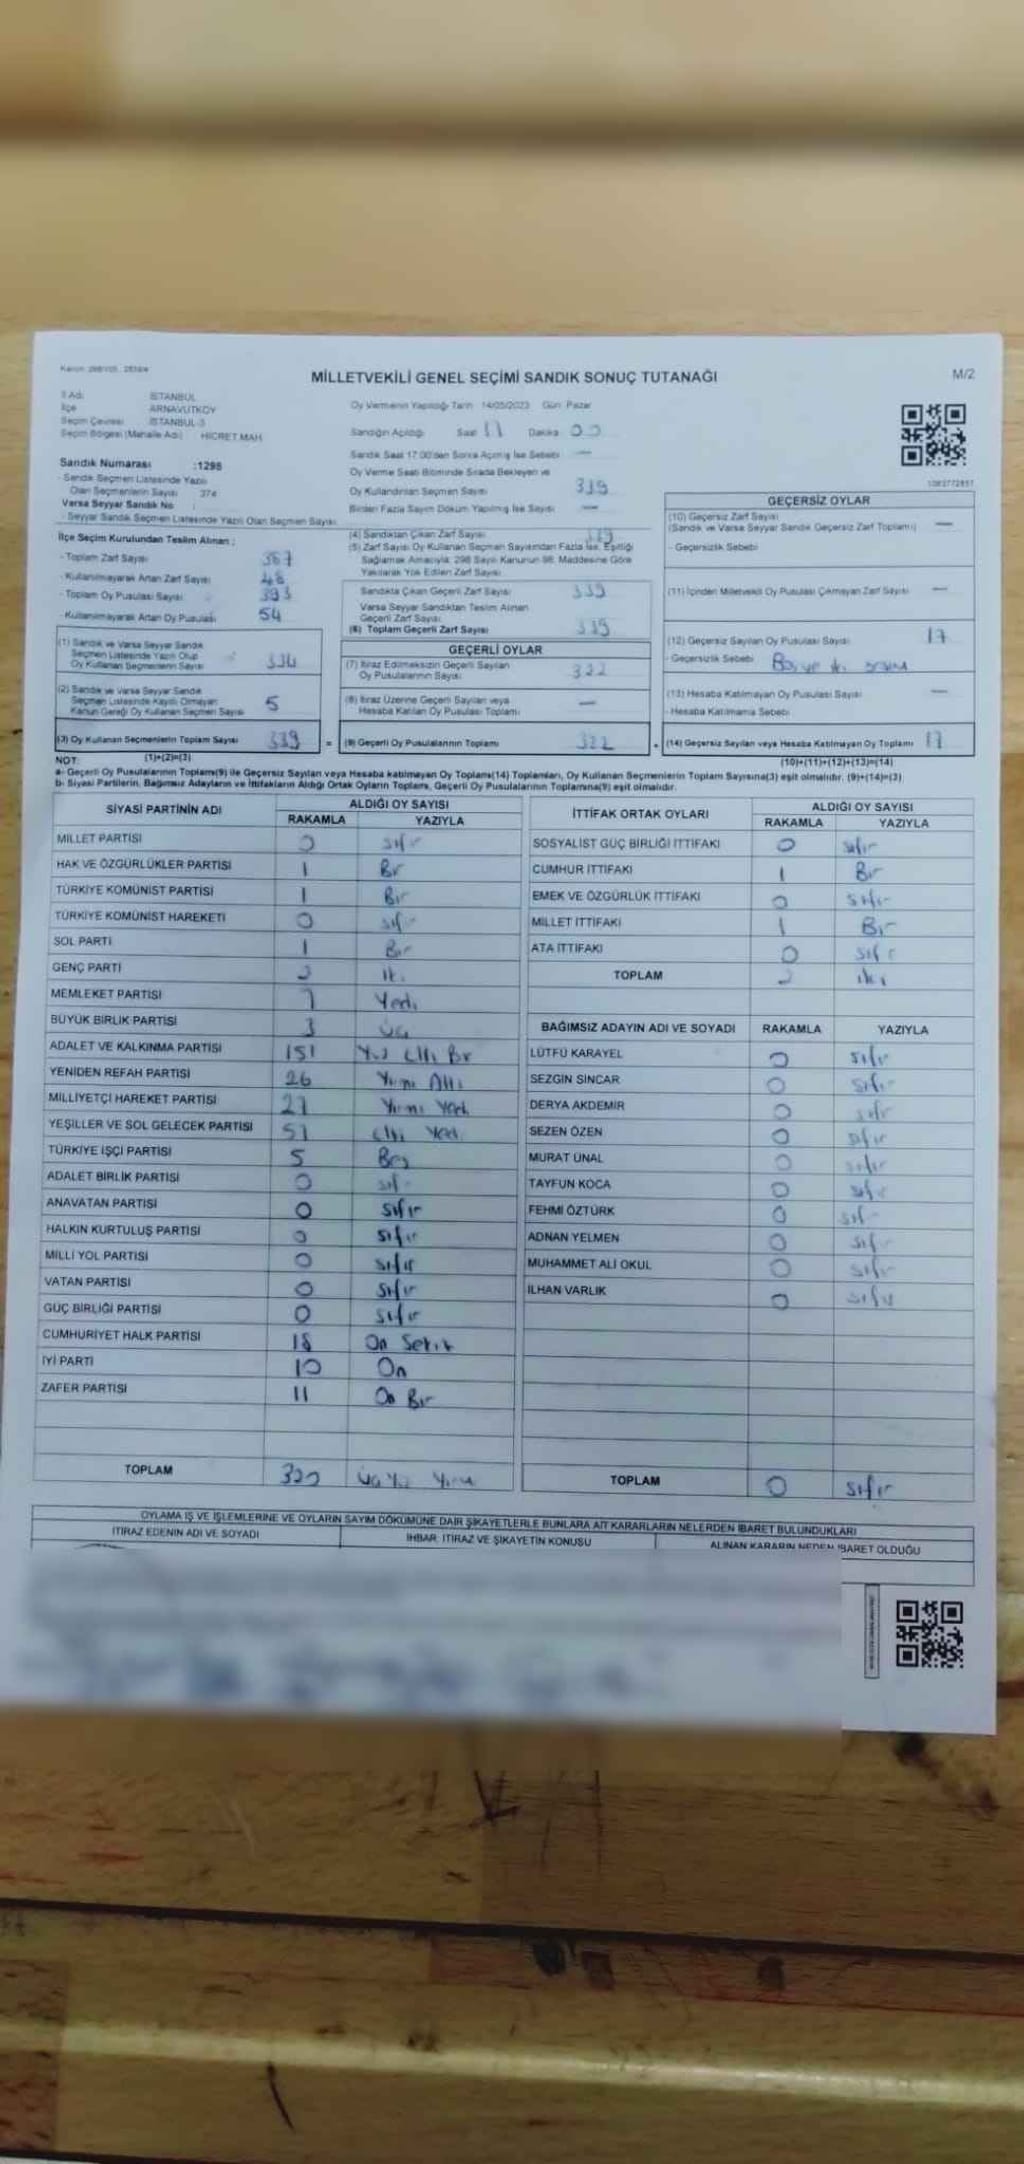 MİLLETVEKİLİ GENEL SEÇİMİ SANDIK SONUÇ TUTANAĞI
M/2
İl Adı İSTANBUL
İlçe ARNAVUTKÖY
Seçim Çevresi İSTANBUL-3
Seçim Bölgesi (Mahalle Adı) HİCRET MAH
Sandık Numarası :1298
Sandık Seçmen Listesinde Yazılı
Olan Seçmenlerin Sayısı 374
Varsa Seyyar Sandık No
- Seyyar Sandık Seçmen Listesinde Yazılı Olan Seçmen Sayısı
Oy Vermenin Yapıldığı Tarih 14/05/2023 Gün Pazar
Sandığın Açıldığı Saat Dakika
Sandık Saat 17.00'den Sonra Açılmış İse Sebebi —
Oy Verme Saati Bitiminde Sırada Bekleyen ve
Oy Kullandırılan Seçmen Sayısı 339
Birden Fazla Sayım Döküm Yapılmış İse Sayısı —
İlçe Seçim Kurulundan Teslim Alınan ;
- Toplam Zarf Sayısı 387
- Kullanılmayarak Artan Zarf Sayısı 48
- Toplam Oy Pusulası Sayısı 393
- Kullanılmayarak Artan Oy Pusulası 54
(1) Sandık ve Varsa Seyyar Sandık
Seçmen Listesinde Yazılı Olup
Oy Kullanan Seçmenlerin Sayısı 334
(2) Sandık ve Varsa Seyyar Sandık
Seçmen Listesinde Kayıtlı Olmayan
Kanun Gereği Oy Kullanan Seçmen Sayısı 5
(3) Oy Kullanan Seçmenlerin Toplam Sayısı 339
(4) Sandıktan Çıkan Zarf Sayısı 339
(5) Zarf Sayısı Oy Kullanan Seçmen Sayısından Fazla İse, Eşitliği
Sağlamak Amacıyla; 298 Sayılı Kanunun 98. Maddesine Göre
Yakılarak Yok Edilen Zarf Sayısı
Sandıkta Çıkan Geçerli Zarf Sayısı 339
Varsa Seyyar Sandıktan Teslim Alınan
Geçerli Zarf Sayısı
(6) Toplam Geçerli Zarf Sayısı 339
GEÇERLİ OYLAR
(7) İtiraz Edilmeksizin Geçerli Sayılan
Oy Pusulalarının Sayısı 322
(8) İtiraz Üzerine Geçerli Sayılan veya
Hesaba Katılan Oy Pusulası Toplamı —
(9) Geçerli Oy Pusulalarının Toplamı 322
GEÇERSİZ OYLAR
(10) Geçersiz Zarf Sayısı
(Sandık ve Varsa Seyyar Sandık Geçersiz Zarf Toplamı) —
- Geçersizlik Sebebi
(11) İçinden Milletvekili Oy Pusulası Çıkmayan Zarf Sayısı —
(12) Geçersiz Sayılan Oy Pusulası Sayısı 17
- Geçersizlik Sebebi
(13) Hesaba Katılmayan Oy Pusulası Sayısı —
- Hesaba Katılmama Sebebi
(14) Geçersiz Sayılan veya Hesaba Katılmayan Oy Toplamı 17
NOT: (1)+(2)=(3)
(10)+(11)+(12)+(13)=(14)
a- Geçerli Oy Pusulalarının Toplamı(9) ile Geçersiz Sayılan veya Hesaba katılmayan Oy Toplamı(14) Toplamları, Oy Kullanan Seçmenlerin Toplam Sayısına(3) eşit olmalıdır. (9)+(14)=(3)
b- Siyasi Partilerin, Bağımsız Adayların ve İttifakların Aldığı Ortak Oyların Toplamı, Geçerli Oy Pusulalarının Toplamına(9) eşit olmalıdır.
SİYASİ PARTİNİN ADI ALDIĞI OY SAYISI
RAKAMLA YAZIYLA
MİLLET PARTİSİ 0 sıfır
HAK VE ÖZGÜRLÜKLER PARTİSİ 1 Bir
TÜRKİYE KOMÜNİST PARTİSİ 1 Bir
TÜRKİYE KOMÜNİST HAREKETİ 0 sıfır
SOL PARTİ 1 Bir
GENÇ PARTİ 2 İki
MEMLEKET PARTİSİ 7 Yedi
BÜYÜK BİRLİK PARTİSİ 3 üç
ADALET VE KALKINMA PARTİSİ 151 Yüz Elli Bir
YENİDEN REFAH PARTİSİ 26 Yirmi Altı
MİLLİYETÇİ HAREKET PARTİSİ 27 Yirmi Yedi
YEŞİLLER VE SOL GELECEK PARTİSİ 57 Elli Yedi
TÜRKİYE İŞÇİ PARTİSİ 5 Beş
ADALET BİRLİK PARTİSİ 0 sıfır
ANAVATAN PARTİSİ 0 sıfır
HALKIN KURTULUŞ PARTİSİ 0 sıfır
MİLLİ YOL PARTİSİ 0 sıfır
VATAN PARTİSİ 0 sıfır
GÜÇ BİRLİĞİ PARTİSİ 0 sıfır
CUMHURİYET HALK PARTİSİ 18 On Sekiz
İYİ PARTİ 10 On
ZAFER PARTİSİ 11 On Bir
TOPLAM 320 üç Yüz Yirmi
İTTİFAK ORTAK OYLARI ALDIĞI OY SAYISI
RAKAMLA YAZIYLA
SOSYALİST GÜÇ BİRLİĞİ İTTİFAKI 0 sıfır
CUMHUR İTTİFAKI 1 Bir
EMEK VE ÖZGÜRLÜK İTTİFAKI 0 sıfır
MİLLET İTTİFAKI 1 Bir
ATA İTTİFAKI 0 sıfır
TOPLAM 2 iki
BAĞIMSIZ ADAYIN ADI VE SOYADI RAKAMLA YAZIYLA
LÜTFÜ KARAYEL 0 sıfır
SEZGİN SİNCAR 0 sıfır
DERYA AKDEMİR 0 sıfır
SEZEN ÖZEN 0 sıfır
MURAT ÜNAL 0 sıfır
TAYFUN KOCA 0 sıfır
FEHMİ ÖZTÜRK 0 sıfır
ADNAN YELMEN 0 sıfır
MUHAMMET ALİ OKUL 0 sıfır
İLHAN VARLIK 0 sıfır
TOPLAM 0 sıfır
OYLAMA İŞ VE İŞLEMLERİNE VE OYLARIN SAYIM DÖKÜMÜNE DAİR ŞİKAYETLERLE BUNLARA AİT KARARLARIN NELERDEN İBARET BULUNDUKLARI
İTİRAZ EDENİN ADI VE SOYADI İHBAR, İTİRAZ VE ŞİKAYETİN KONUSU ALINAN KARARIN NEDEN İBARET OLDUĞU